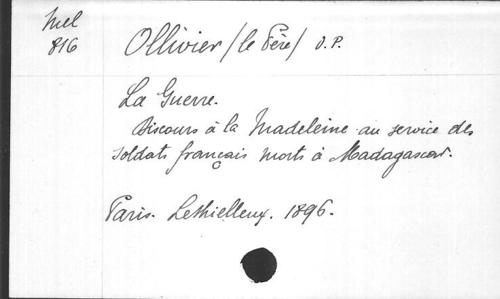 Mel
816
Ollivier (le Père) O.P.
La Guerre.
Discours à la Madeleine au service des
soldats français morts à Madagascar.
Paris. Lethielleux. 1896.